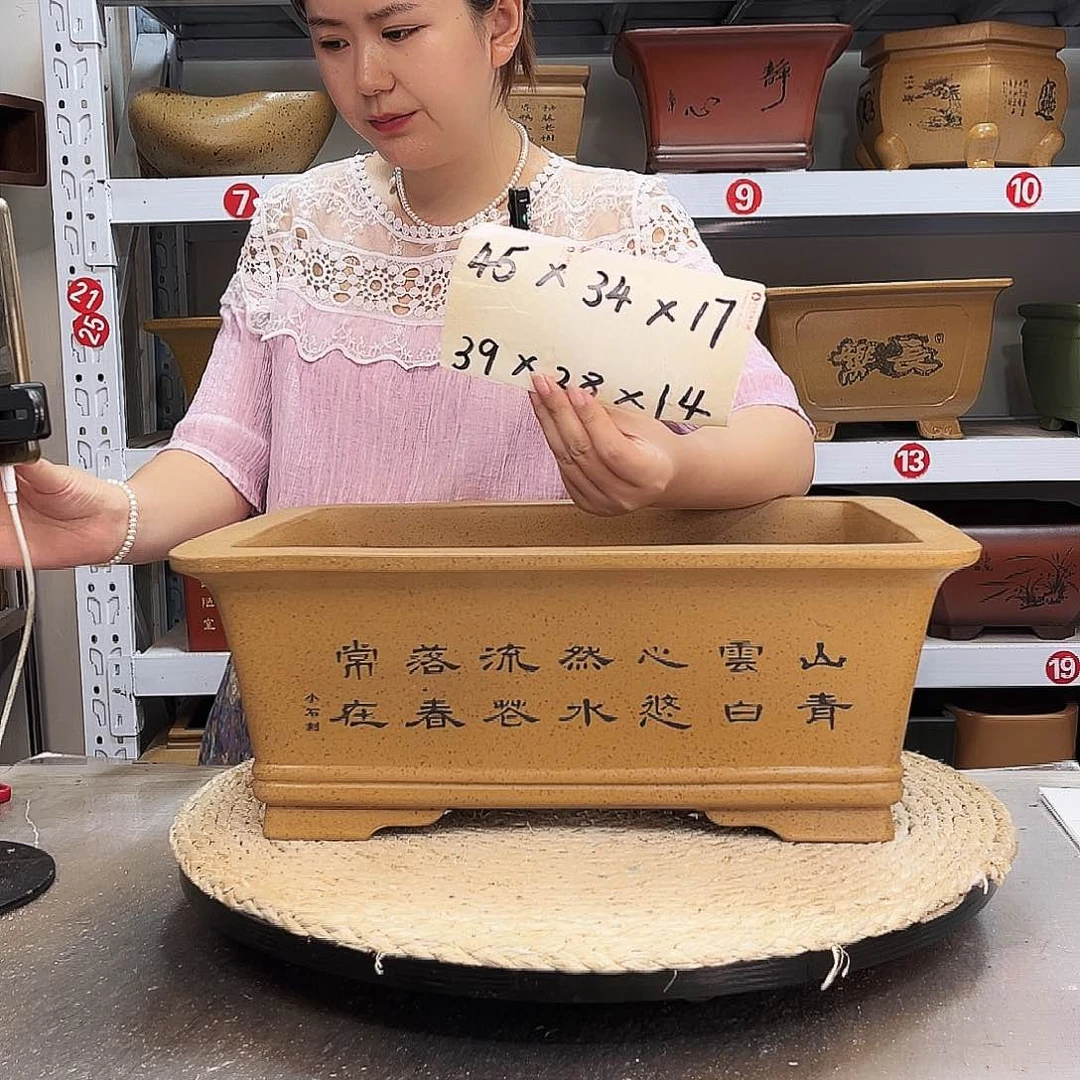 45×34×17
39×28×14
山青
雲白
心悠
然水
流花
落春
常在
小石刻
靜
心
7
9
10
21
25
13
19
陋室